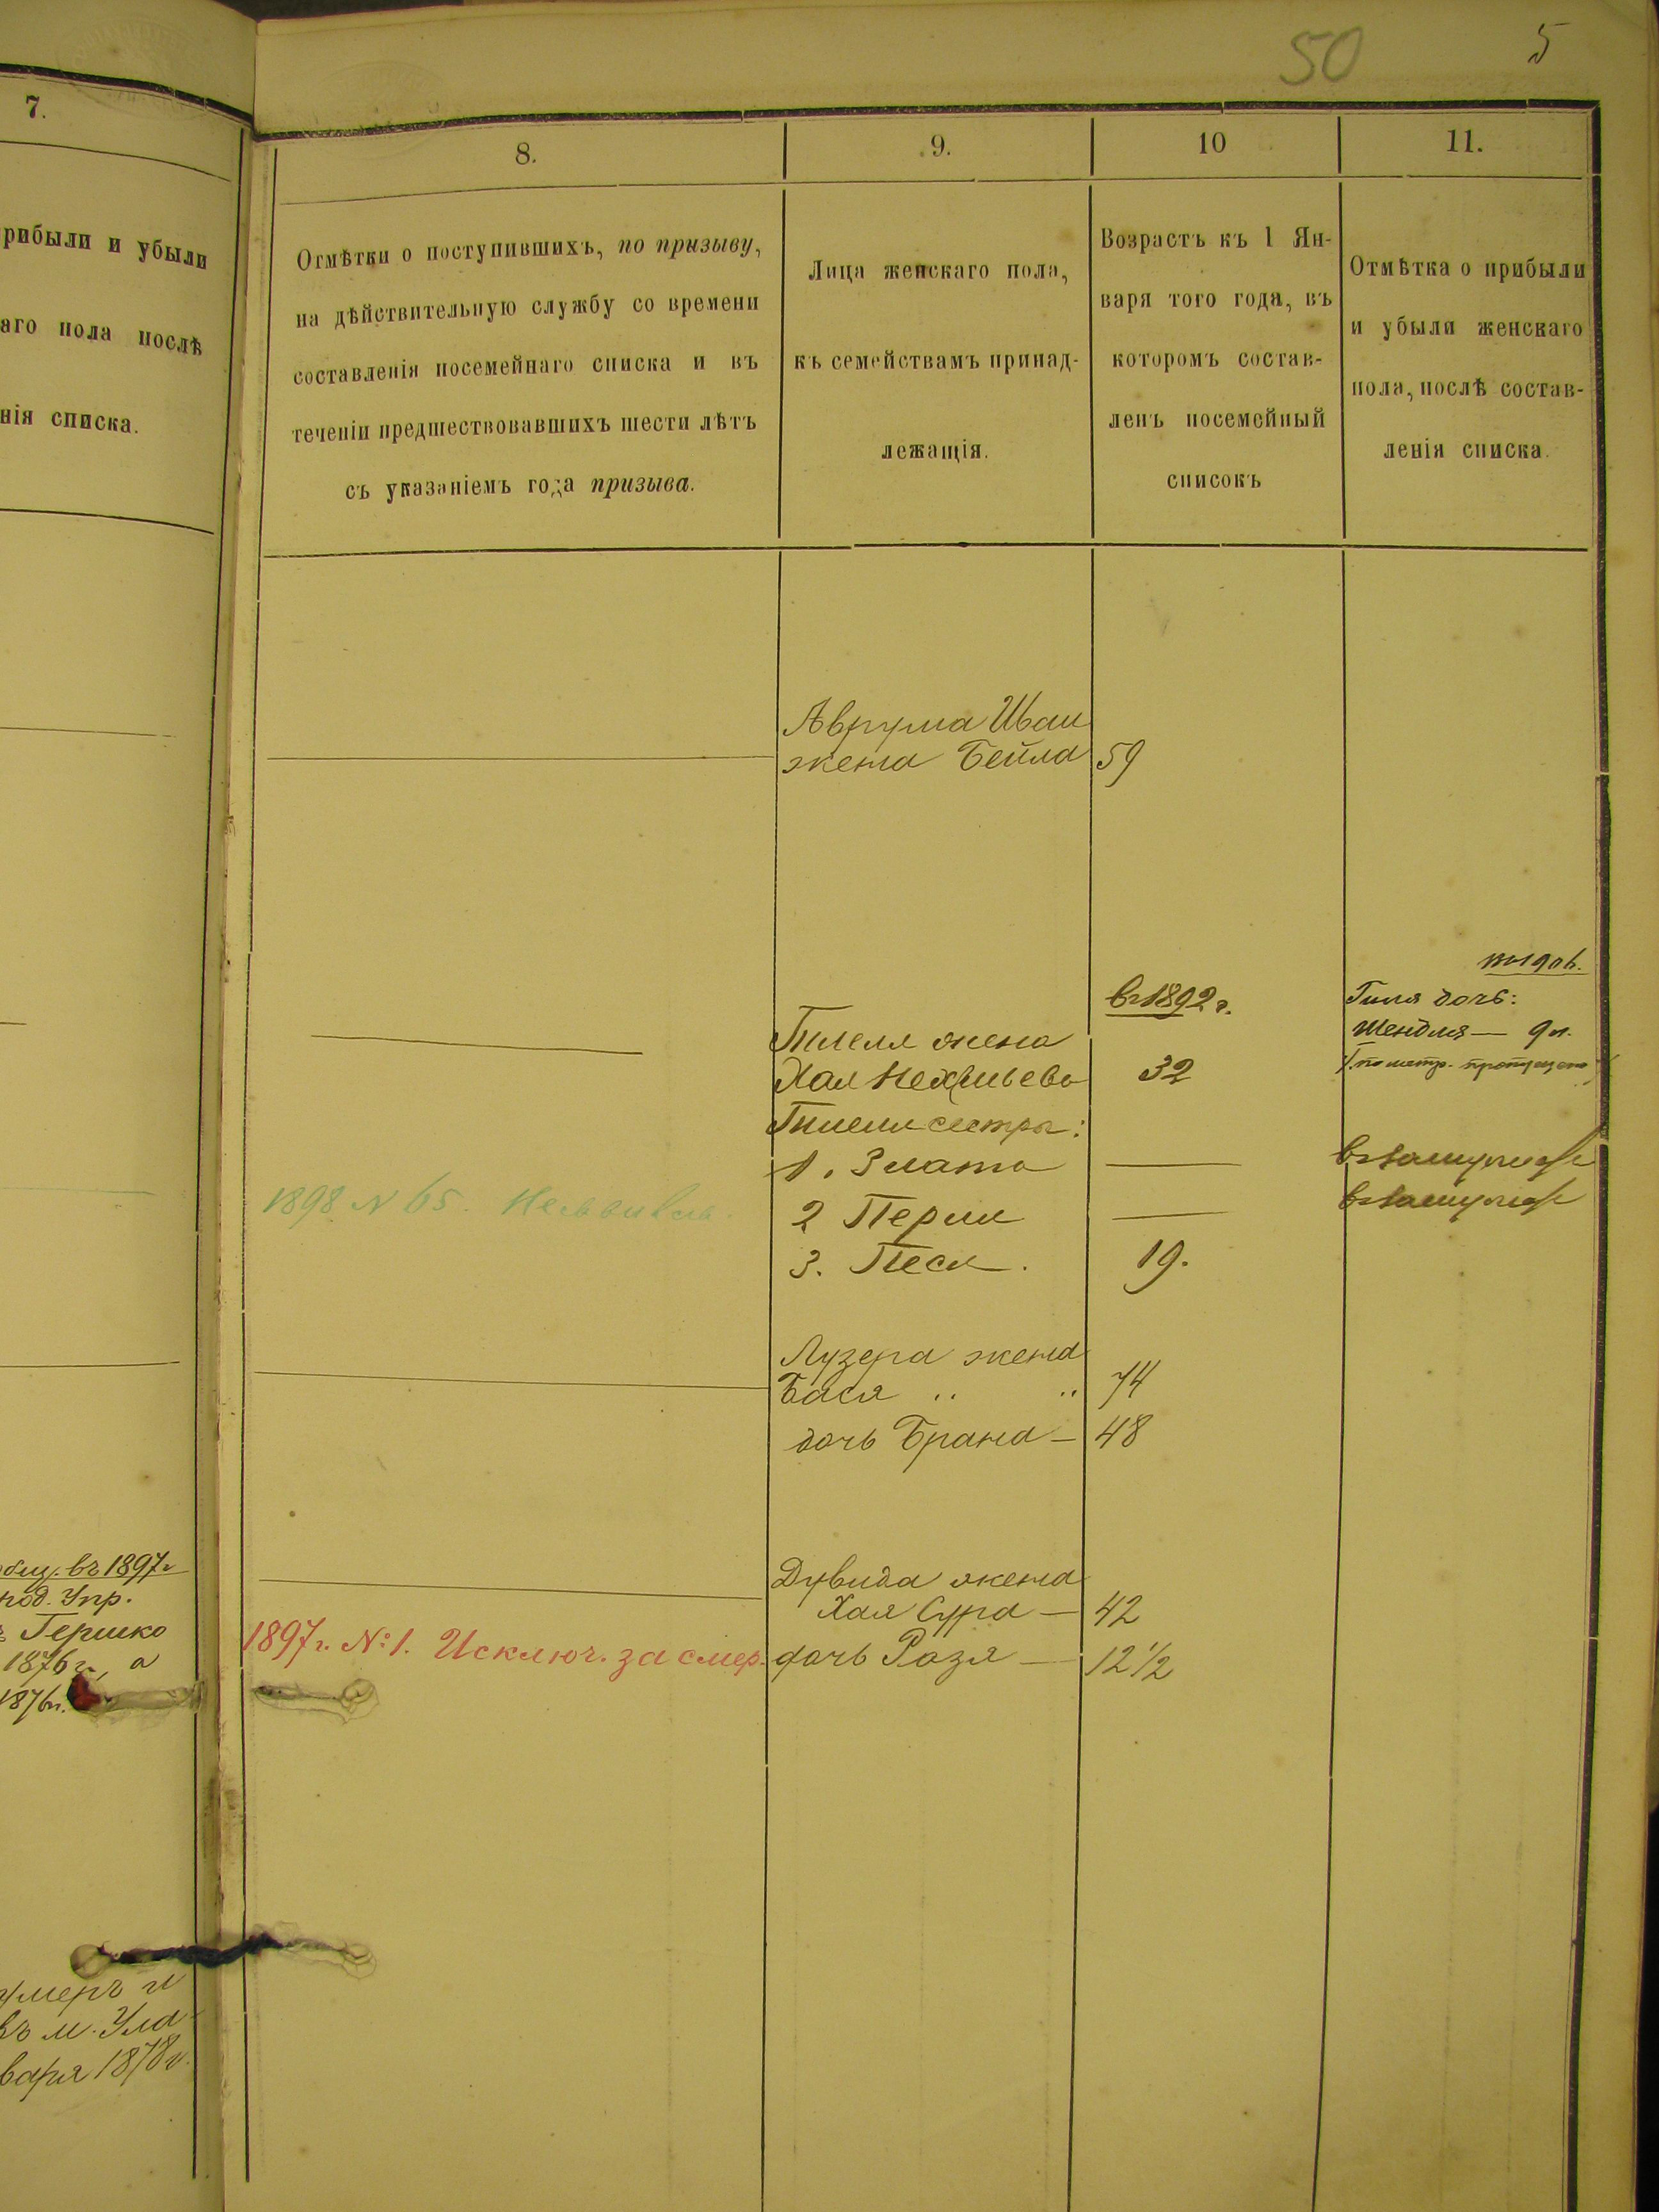 50
5
7.
рибыли и убыли
аго пола послѣ
нія списка.
8.
9.
10
11.
Отмѣтки о поступившихъ, по призыву,
на дѣйствительную службу со времени
составленія посемейнаго списка и въ
теченіи предшествовавшихъ шести лѣтъ
съ указаніемъ года призыва.
Лица женскаго пола,
къ семействамъ принад-
лежащія.
Возрастъ къ 1 Ян-
варя того года, въ
которомъ состав-
ленъ посемейный
списокъ
Отмѣтка о прибыли
и убыли женскаго
пола, послѣ состав-
ленія списка.
Аврума
жена Бейла 59
въ 1892 г.
дочь:
Шендля — 9 л.
жена
Хая 32
сестры:
1. Злата —
2 Перля —
3. Песя. 19.
1898 N 65.
Лузера жена
Бася „ „ 74
дочь Брана — 48
Дувида жена
Хая Сура — 42
1897 г. № 1. Исключ. за смер.
дочь Розя — 12 1/2
въ 1897 г
под. Упр.
Гершко
1876 г., а
1876 г.
умеръ и
въ м. Ула
варя 1878 г.